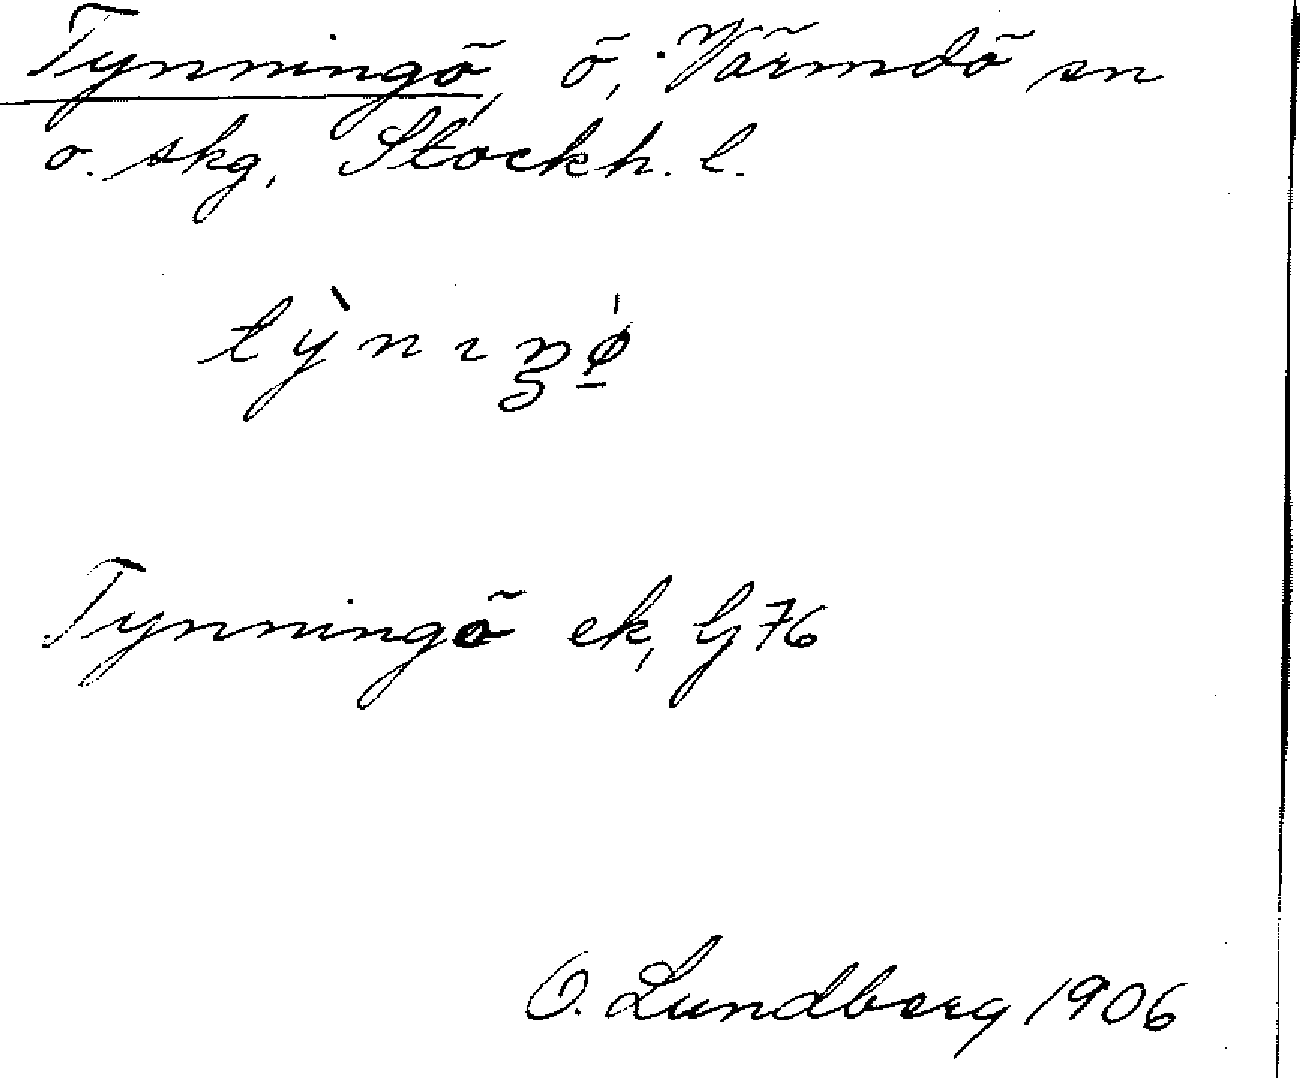 Tynningö, ö, Värmdö sn
o. skg, Stockh. l.
tỳnɪŋǿ̠
Tynningö ek, Gj 76
O. Lundberg 1906